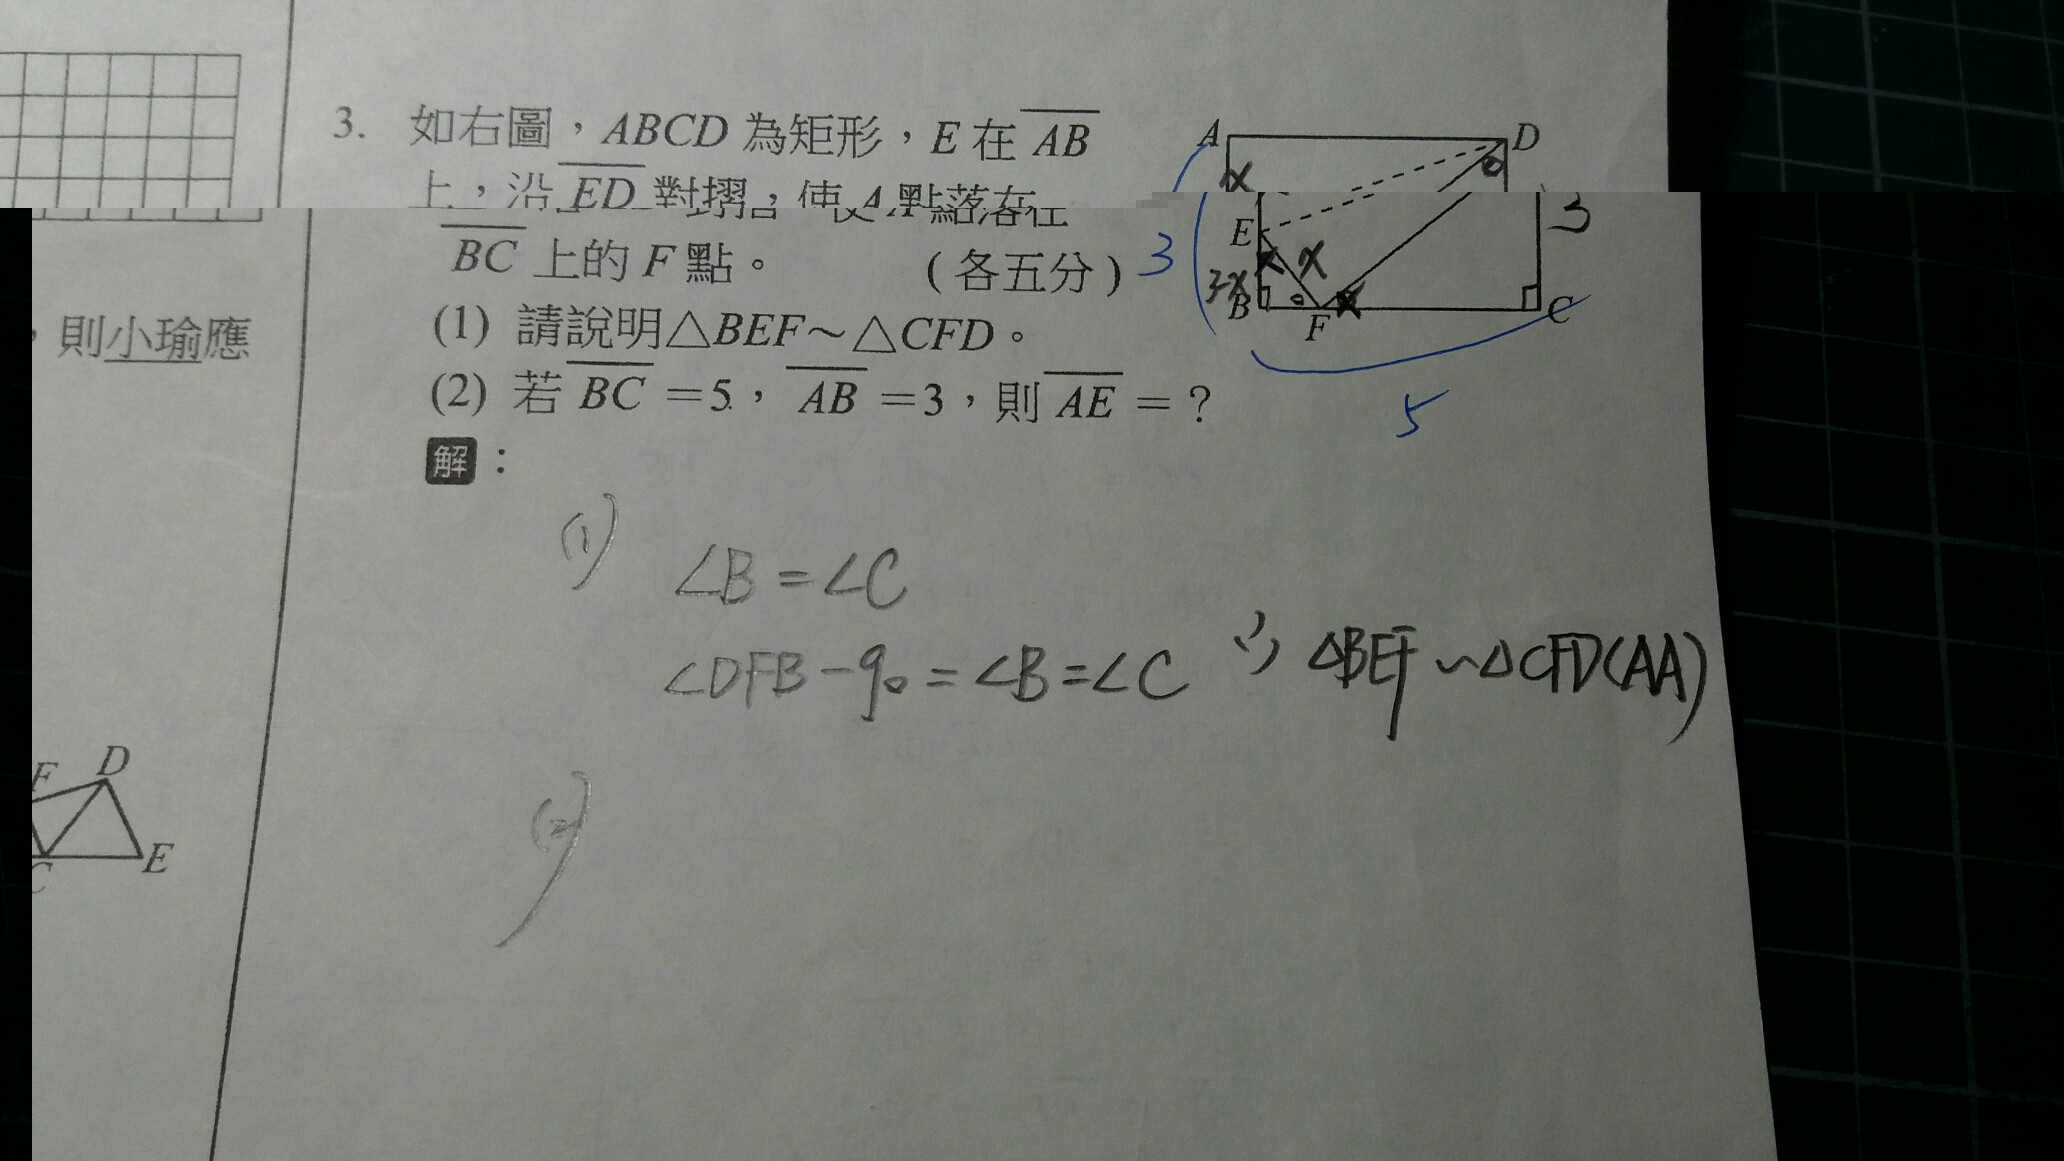 3. 如右圖，ABCD 為矩形，E 在 AB
上，沿 ED 對摺，使 A 點落在
BC 上的 F 點。 (各五分)
(1) 請說明△BEF~△CFD。
(2) 若 BC =5， AB =3，則 AE = ?
解：
A
D
x
E
x
3-x
B
F
C
3
3
5
(1)
∠B=∠C
∠DFB-90=∠B=∠C ∴ △BEF~△CFD(AA)
(2)
，則小瑜應
F
D
C
E